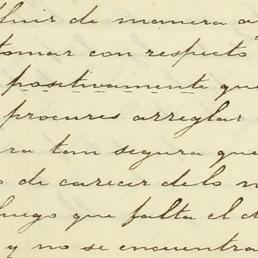 fluir de manera a
tomar con respecto
positivamente que
procures arreglar
ra tan segura que
de carecer delo
luego que falta el
y no se encuentra